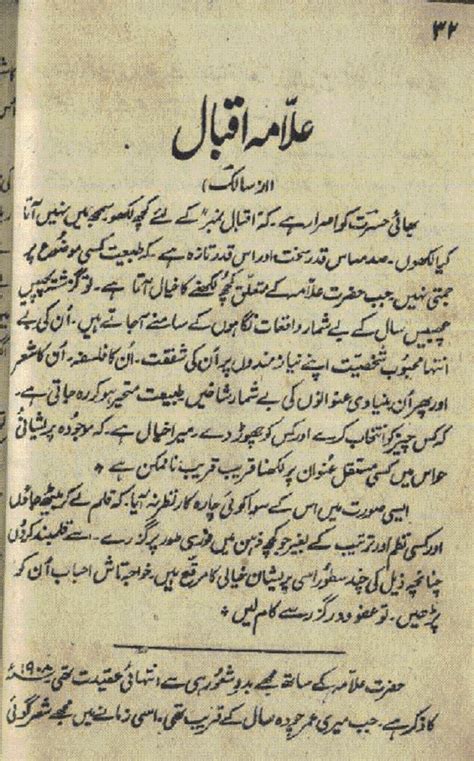 ۳۲
علامہ اقبال
(از سالک)
بھائی حسرت کو اصرار ہے۔ کہ "اقبال نمبر" کے لئے کچھ لکھو سمجھ میں نہیں آتا
کیا لکھوں۔ صدمہ اس قدر سخت اور اس قدر تازہ ہے۔ کہ طبیعت کسی موضوع پر
جمتی نہیں۔ جب حضرت علامہ کے متعلق کچھ لکھنے کا خیال آتا ہے۔ تو گزشتہ پچیس
چھبیس سال کے بے شمار واقعات نگاہوں کے سامنے آجاتے ہیں۔ اُن کی بے
انتہا محبوب شخصیت اپنے نیاز مندوں پر اُن کی شفقت۔ اُن کا فلسفہ۔ اُن کا شعر
اور پھر اُن بنیادی عنوانوں کی بے شمار شاخیں طبیعت متحیر ہو کر رہ جاتی ہے۔
کہ کس چیز کو انتخاب کرے اور کس کو چھوڑ دے۔ میرا خیال ہے۔ کہ موجودہ پریشانیٔ
حواس میں کسی مستقل عنوان پر لکھنا قریب قریب ناممکن ہے *
ایسی صورت میں اس کے سوا کوئی چارہ کار نظر نہ آیا۔ کہ قلم لے کر بیٹھ جاؤں
اور کسی نظم اور ترتیب کے بغیر جو کچھ ذہن میں فوری طور پر گزرے۔ اسے قلمبند کردوں
چنانچہ ذیل کی چند سطور اسی پریشان خیالی کا مرقع ہیں۔ خواجہ تاش احباب اُن کو
پڑھیں۔ تو عفو و درگزر سے کام لیں *
حضرت علامہ کے ساتھ مجھے بدو شعور ہی سے انتہائی عقیدت تھی۔ ۱۹۰۸ء
کا ذکر ہے۔ جب میری عمر چودہ سال کے قریب تھی۔ اسی زمانے میں مجھے شعر گوئی